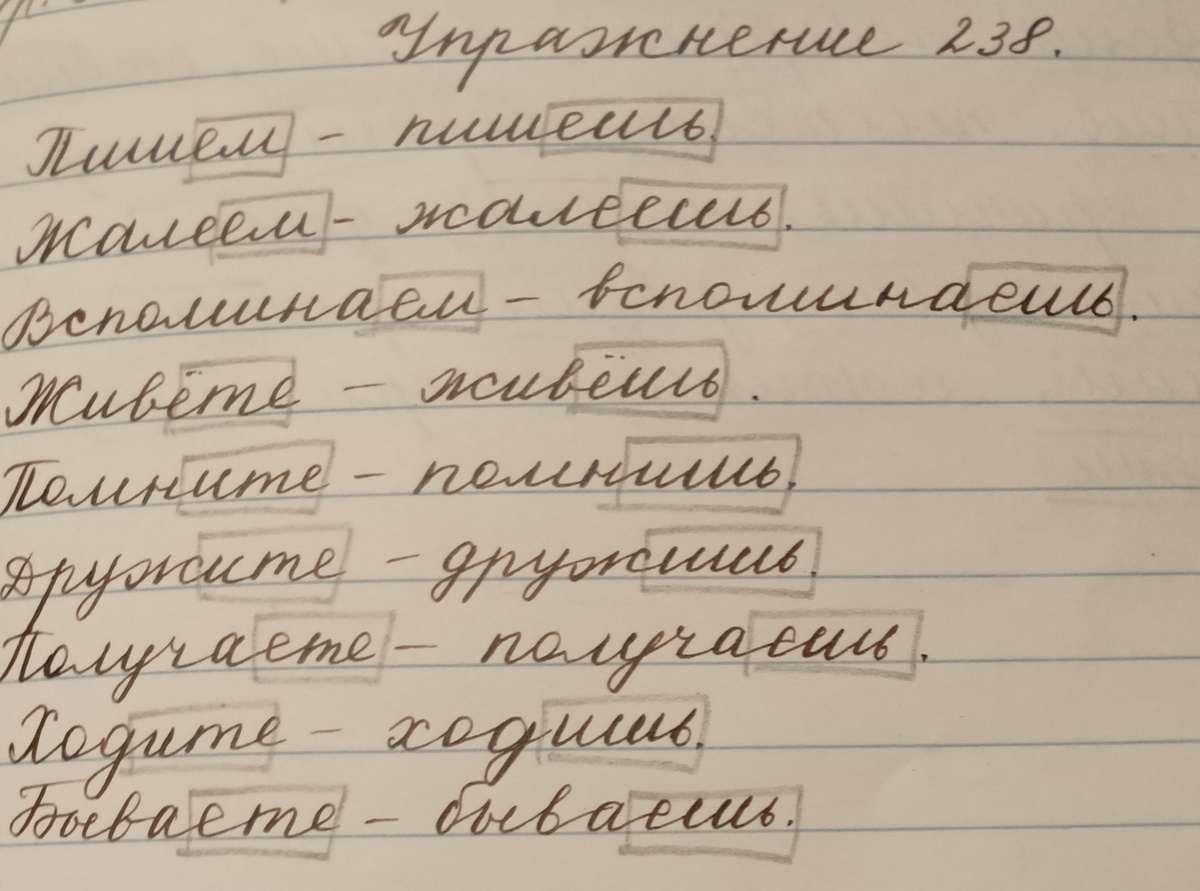 Упражнение 238.
Пишем – пишешь.
Жалеем – жалеешь.
Вспоминаем – вспоминаешь.
Живёте – живёшь.
Помните – помнишь.
Дружите – дружишь.
Получаете – получаешь.
Ходите – ходишь.
Бываете – бываешь.